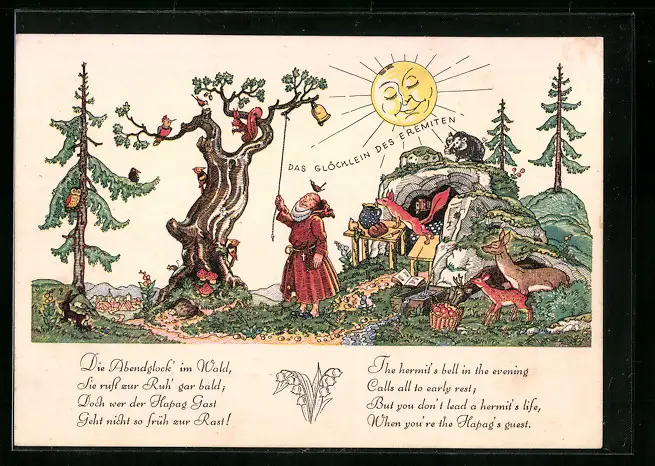 DAS GLÖCKLEIN DES EREMITEN
Die Abendglock' im Wald,
Sie ruft zur Ruh' gar bald;
Doch wer der Hapag Gast
Geht nicht so früh zur Rast!
The hermit's bell in the evening
Calls all to early rest;
But you don't lead a hermit's life,
When you're the Hapag's guest.